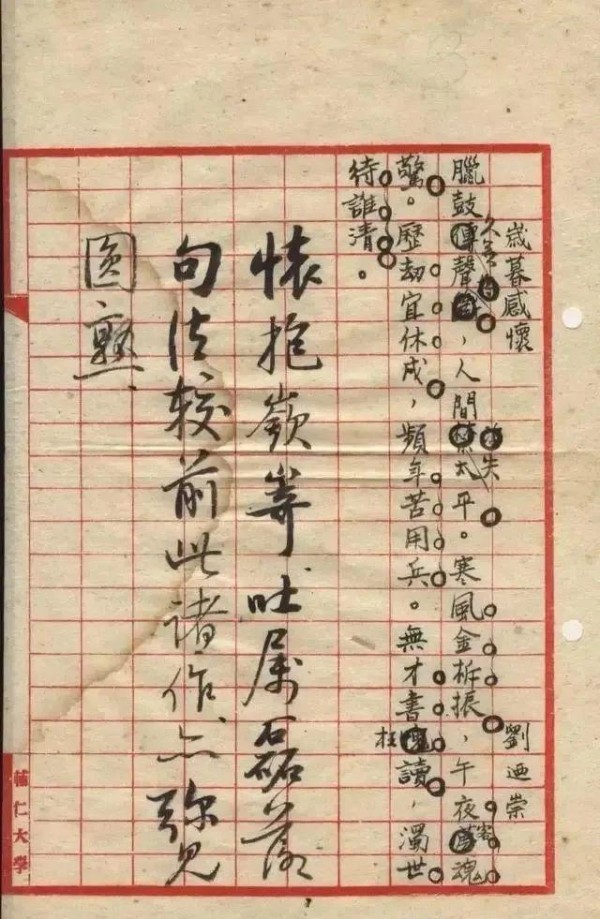 歲暮感懷 劉迺崇
臘鼓傳聲,人間太平。寒風金柝振,午夜客魂
驚。歷劫宜休戍,頻年苦用兵。無才書枉讀,濁世
待誰清。
懷抱嶔崎吐属磊落
句法較前此諸作亦弥見
圓熟
輔仁大學